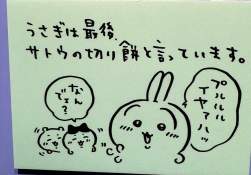 うさぎは最後、
サトウの切り餅と言っています。
プルルルル
イヤァハッ
なん
でェ?